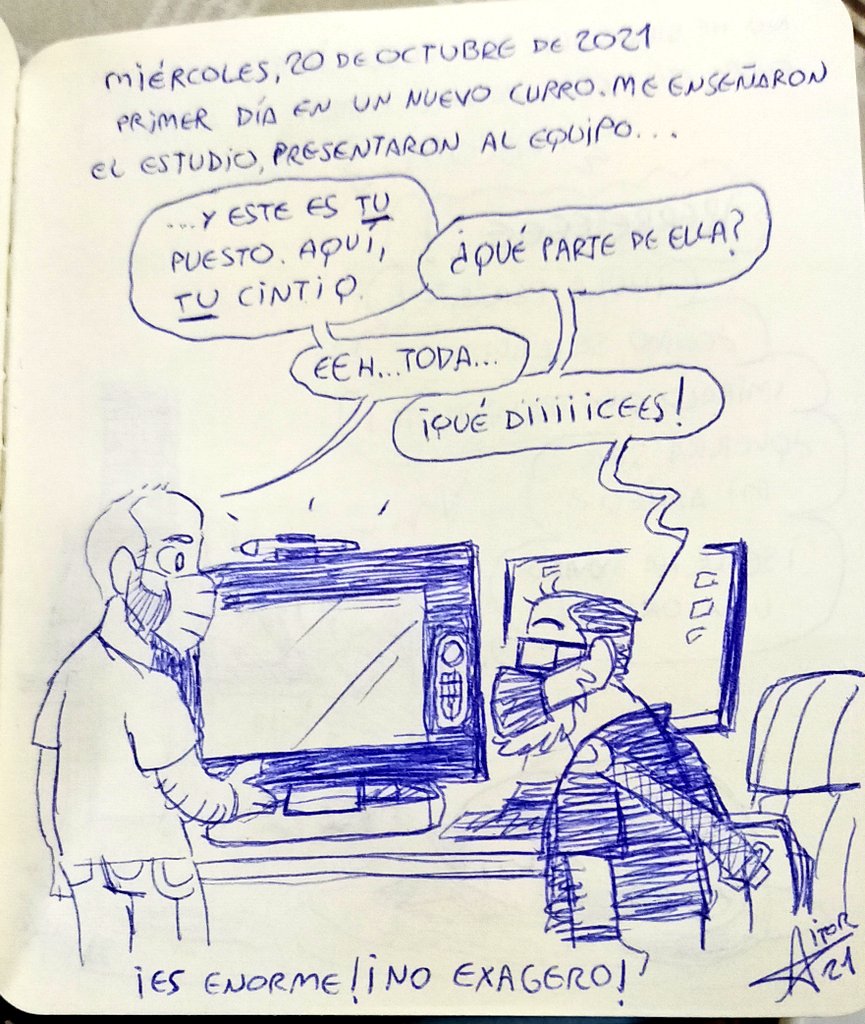 MIÉRCOLES, 20 DE OCTUBRE DE 2021
PRIMER DÍA EN UN NUEVO CURRO. ME ENSEÑARON
EL ESTUDIO, PRESENTARON AL EQUIPO...
...Y ESTE ES TU
PUESTO. AQUÍ,
TU CINTIQ.
¿QUÉ PARTE DE ELLA?
EEH...TODA...
¡QUÉ DIIIIICEES!
¡ES ENORME! ¡NO EXAGERO!
AITOR
21